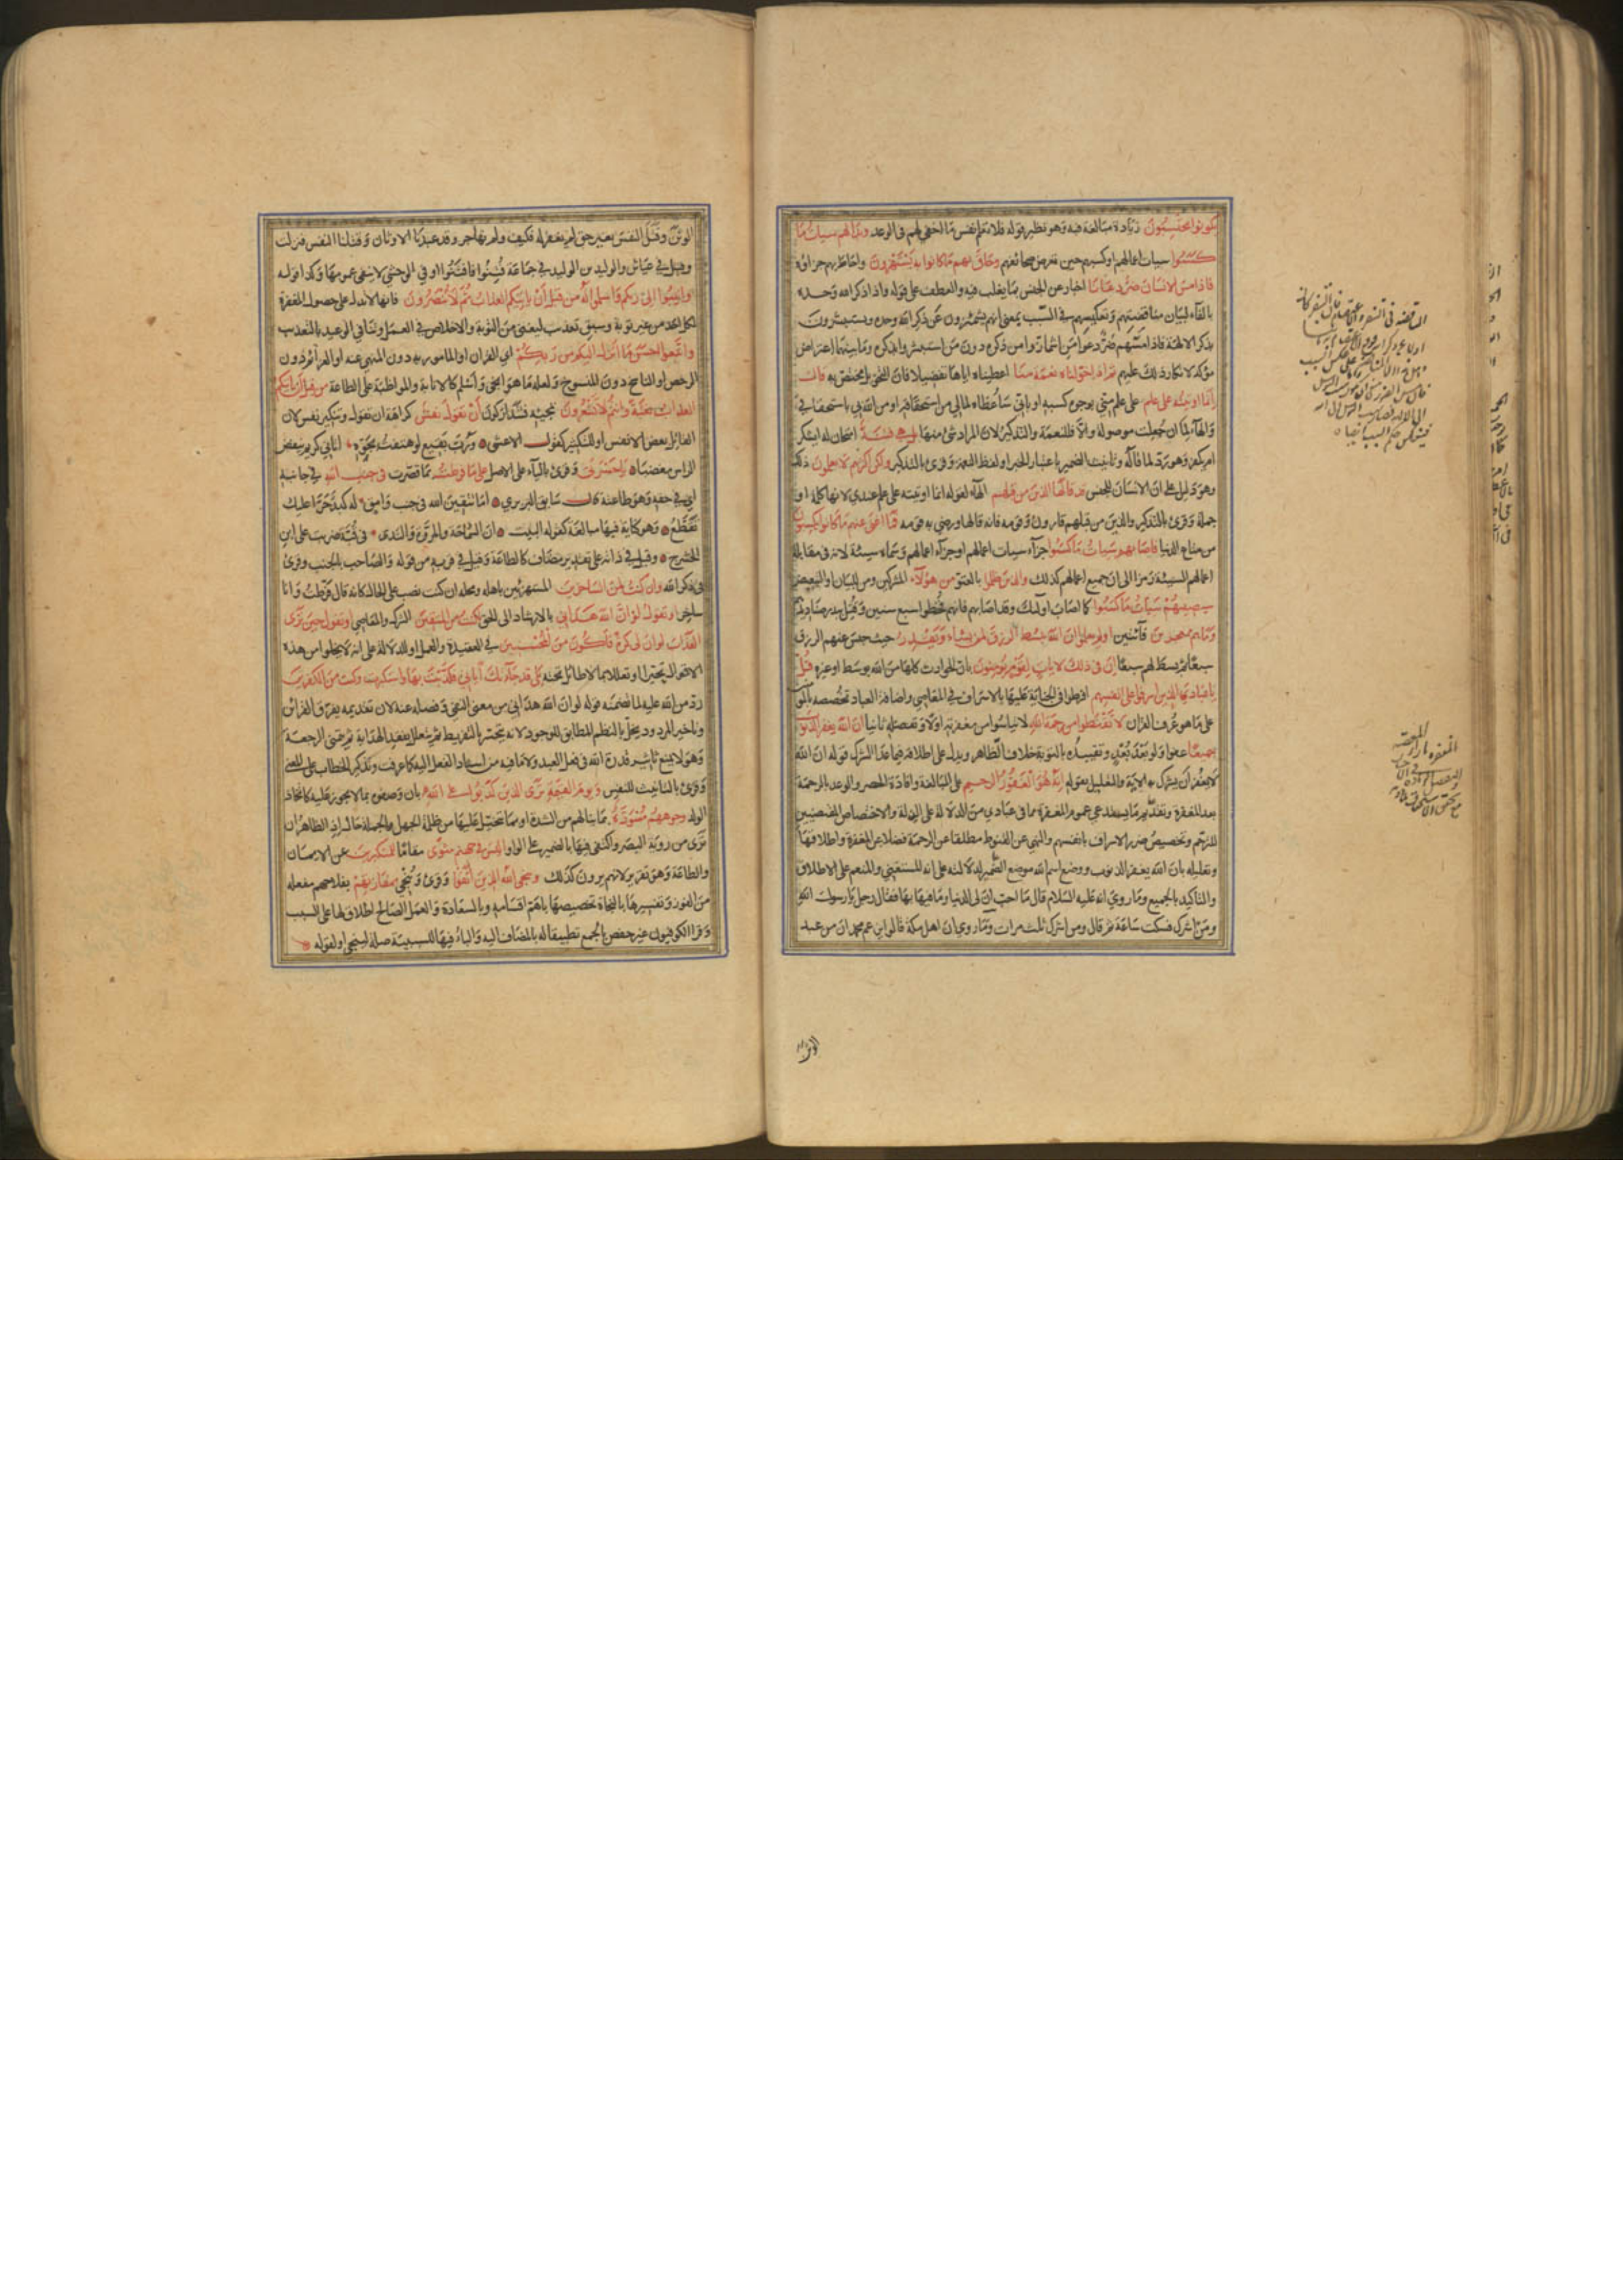 يكونوا يحتسبون زيادة مبالغة فيه وهو نظير قوله فلا تعلم نفس ما اخفي لهم في الوعد وبدا لهم سيات ما
كسبوا سيات اعمالهم او كسبهم حين تعرض صحائفهم وحاق بهم ما كانوا به يستهزون واحاط بهم جزاؤه
فاذا مس الانسان ضر دعانا اخبار عن الجنس بما يغلب فيه والعطف على قوله واذا ذكر الله وحده
بالفاء لبيان مناقضتهم وتعكيسهم في السبب بمعنى انهم يشمئزون عن ذكر الله وحده ويستبشرون
بذكر الالهة فاذا مسهم ضر دعوا من اشمازوا من ذكره دون من استبشروا بذكره وما بينهما اعتراض
مؤكد لانكار ذلك عليهم ثم اذا خولناه نعمة منا اعطيناه اياها تفضيلا فان التخويل مختص به قال
انما اوتيته على علم على علم مني بوجوه كسبه او باني ساعطاه لمالي من استحقاقه او من الله بي باستحقاقي
والهاء لما ان جعلت موصولة والا فللنعمة والتذكير لان المراد شئ منها بل هي فتنة امتحان له ايشكر
ام يكفر وهو رد لما قاله وتانيث الضمير باعتبار الخبر او لفظ النعمة وقرئ بالتذكير ولكن اكثرهم لا يعلمون ذلك
وهو دليل على ان الانسان للجنس قد قالها الذين من قبلهم الهاء لقوله انما اوتيته على علم عندي لانها كلمة او
جملة وقرئ بالتذكير والذين من قبلهم قارون وقومه فانه قالها ورضي به قومه فما اغنى عنهم ما كانوا يكسبون
من متاع الدنيا فاصابهم سيات ما كسبوا جزاء سيات اعمالهم او جزاء اعمالهم وسماه سيئة لانه في مقابلة
اعمالهم السيئة رمزا الى ان جميع اعمالهم كذلك والذين ظلموا بالعتو من هؤلاء المشركين ومن للبيان او التبعيض
سيصيبهم سيات ما كسبوا كما اصاب اولئك وقد اصابهم فانهم قحطوا سبع سنين وقتل ببدر صناديدهم
وما هم بمعجزين فائتين اولم يعلموا ان الله يبسط الرزق لمن يشاء ويقدر حيث حبس عنهم الرزق
سبعا ثم بسط لهم سبعا ان في ذلك لايات لقوم يؤمنون بان الحوادث كلها من الله بوسط او غيره قل
يا عبادي الذين اسرفوا على انفسهم افرطوا في الجناية عليها بالاسراف في المعاصي واضافة العباد تخصصه بالمؤمنين
على ما هو عرف القران لا تقنطوا من رحمة الله لا تياسوا من مغفرته اولا وتفضله ثانيا ان الله يغفر الذنوب
جميعا عفوا ولو بعد بعد وتقييده بالتوبة خلاف الظاهر ويدل على اطلاقه فيما عدا الشرك قوله ان الله
لا يغفر ان يشرك به الاية والتعليل بقوله انه هو الغفور الرحيم على المبالغة وافادة الحصر والوعد بالرحمة
بعد المغفرة وتقديم ما يستدعي عموم المغفرة مما في عبادي من الدلالة على الذلة والاختصاص المقتضيين
للترحم وتخصيص ضرر الاسراف بانفسهم والنهي عن القنوط مطلقا عن الرحمة فضلا عن المغفرة واطلاقها
وتعليله بان الله يغفر الذنوب ووضع اسم الله موضع الضمير لدلالته على انه المستغني والمنعم على الاطلاق
والتاكيد بالجميع وما روي انه عليه السلام قال ما احب ان لي الدنيا وما فيها بها فقال رجل يا رسول الله
ومن اشرك فسكت ساعة ثم قال ومن اشرك ثلث مرات وما روي ان اهل مكة قالوا يزعم محمد ان من عبد
الوثن
الوثن وقتل النفس بغير حق لم يغفر له فكيف ولم نهاجر وقد عبدنا الاوثان وقتلنا النفس فنزلت
وقيل في عياش والوليد بن الوليد في جماعة فتنوا فافتتنوا او في الوحشي لا ينفي عمومها وكذا قوله
وانيبوا الى ربكم واسلموا له من قبل ان ياتيكم العذاب ثم لا تنصرون فانها لا تدل على حصول المغفرة
لكل احد من غير توبة وسبق تعذيب ليغني من التوبة والاخلاص في العمل وينافي الوعيد بالتعذيب
واتبعوا احسن ما انزل اليكم من ربكم اي القران او المامور به دون المنهي عنه او العزائم دون
الرخص او الناسخ دون المنسوخ ولعله ما هو انجى واسلم كالانابة والمواظبة على الطاعة من قبل ان ياتيكم
العذاب بغتة وانتم لا تشعرون بمجيئه فتتداركون ان تقول نفس كراهة ان تقول وتنكير نفس لان
القائل بعض الانفس او للتكثير كقول الاعشى ورب بقيع لو هتفت بجوه اتاني كريم ينفض
الراس مغضبا يا حسرتى وقرئ بالياء على الاصل على ما فرطت بما قصرت في جنب الله في جانبه
اي في حقه وهو طاعته قال سابق البربري اما تتقين الله في جنب وامق له كبد حرا عليك
تقطع وهو كناية فيها مبالغة كقوله البيت ان السماحة والمروة والندى في قبة ضربت على ابن
الحشرج وقيل في ذاته على تقدير مضاف كالطاعة وقيل في قربه من قوله والصاحب بالجنب وقرئ
في ذكر الله وان كنت لمن الساخرين المستهزئين باهله ومحله ان كنت نصب على الحال كانه قال فرطت وانا
ساخر او تقول لو ان الله هداني بالارشاد الى الحق لكنت من المتقين الشرك والمعاصي او تقول حين ترى
العذاب لو ان لي كرة فاكون من المحسنين في العقيدة والعمل او للدلالة على انه لا يخلوا من هذه
الاقوال تحيرا او تعللا بما لا طائل تحته بلى قد جاءتك اياتي فكذبت بها واستكبرت وكنت من الكافرين
رد من الله عليه لما تضمنه قوله لو ان الله هداني من معنى النفي وفصله عنه لان تقديمه يفرق القرائن
وتاخير المردود يخل بالنظم المطابق للوجود لانه يتحسر بالتفريط ثم يتعلل بفقد الهداية ثم يتمنى الرجعة
وهو لا يمنع تاثير قدرة الله في فعل العبد ولا ما فيه من اسناد الفعل اليه كما عرفت وتذكير الخطاب على المعنى
وقرئ بالتانيث للنفس ويوم القيمة ترى الذين كذبوا على الله بان وصفوه بما لا يجوز عليه كاتخاذ
الولد وجوههم مسودة بما ينالهم من الشدة او مما يتخيل عليها من ظلمة الجهل والجملة حال اذ الظاهر ان
ترى من رؤية البصر واكتفى فيها بالضمير على الواو اليس في جهنم مثوى مقاما للمتكبرين عن الايمان
والطاعة وهو تقرير لانهم يرون كذلك وينجى الله الذين اتقوا وقرئ وينجي بمفازتهم بفلاحهم مفعلة
من الفوز وتفسيرها بالنجاة تخصيصها باهم اقسامه وبالسعادة والعمل الصالح اطلاق لها على السبب
وقرا الكوفيون غير حفص بالجمع تطبيقا له بالمضاف اليه والباء فيها للسببية صلة لينجى او لقوله